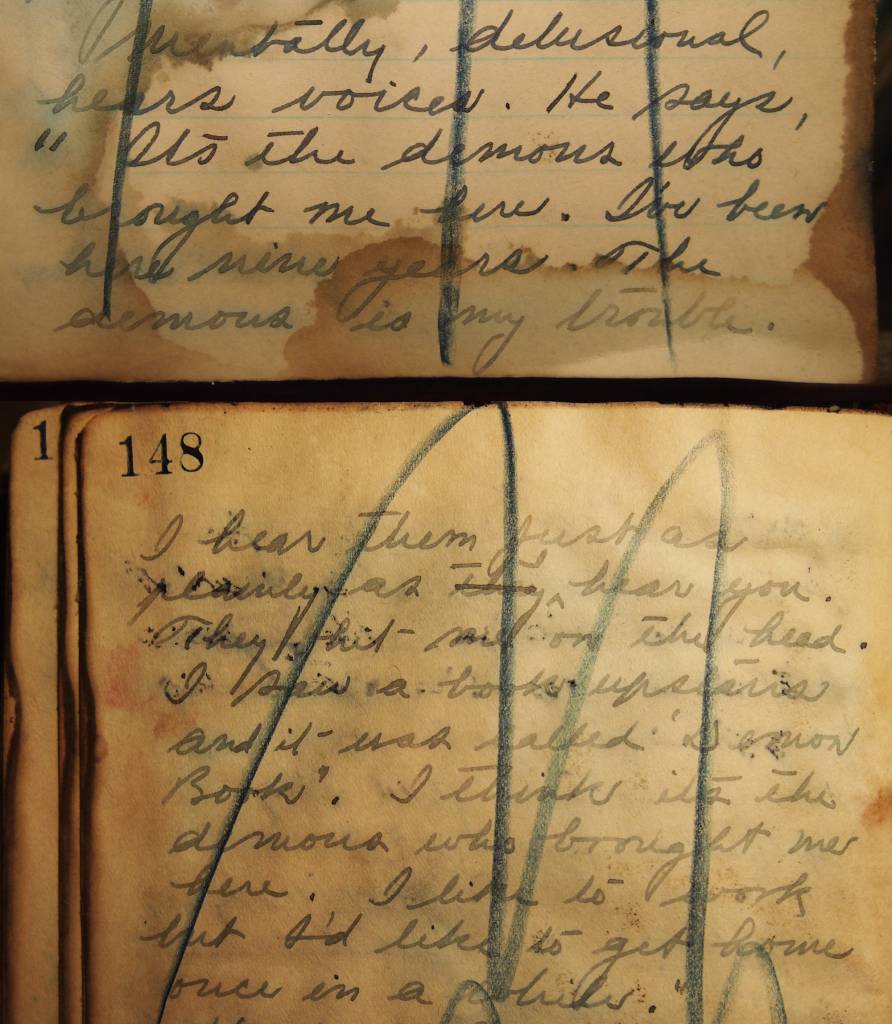 Mentally, delusional,
hears voices. He says,
" Its the demons who
brought me here. I've been
here nine years. The
demons is my trouble.
1
148
I hear them just as
plainly as they hear you.
They hit me on the head.
I saw a book upstairs
and it was called 'Demon
Book". I think its the
demons who brought me
here. I like to work
but I'd like to get home
once in a while."